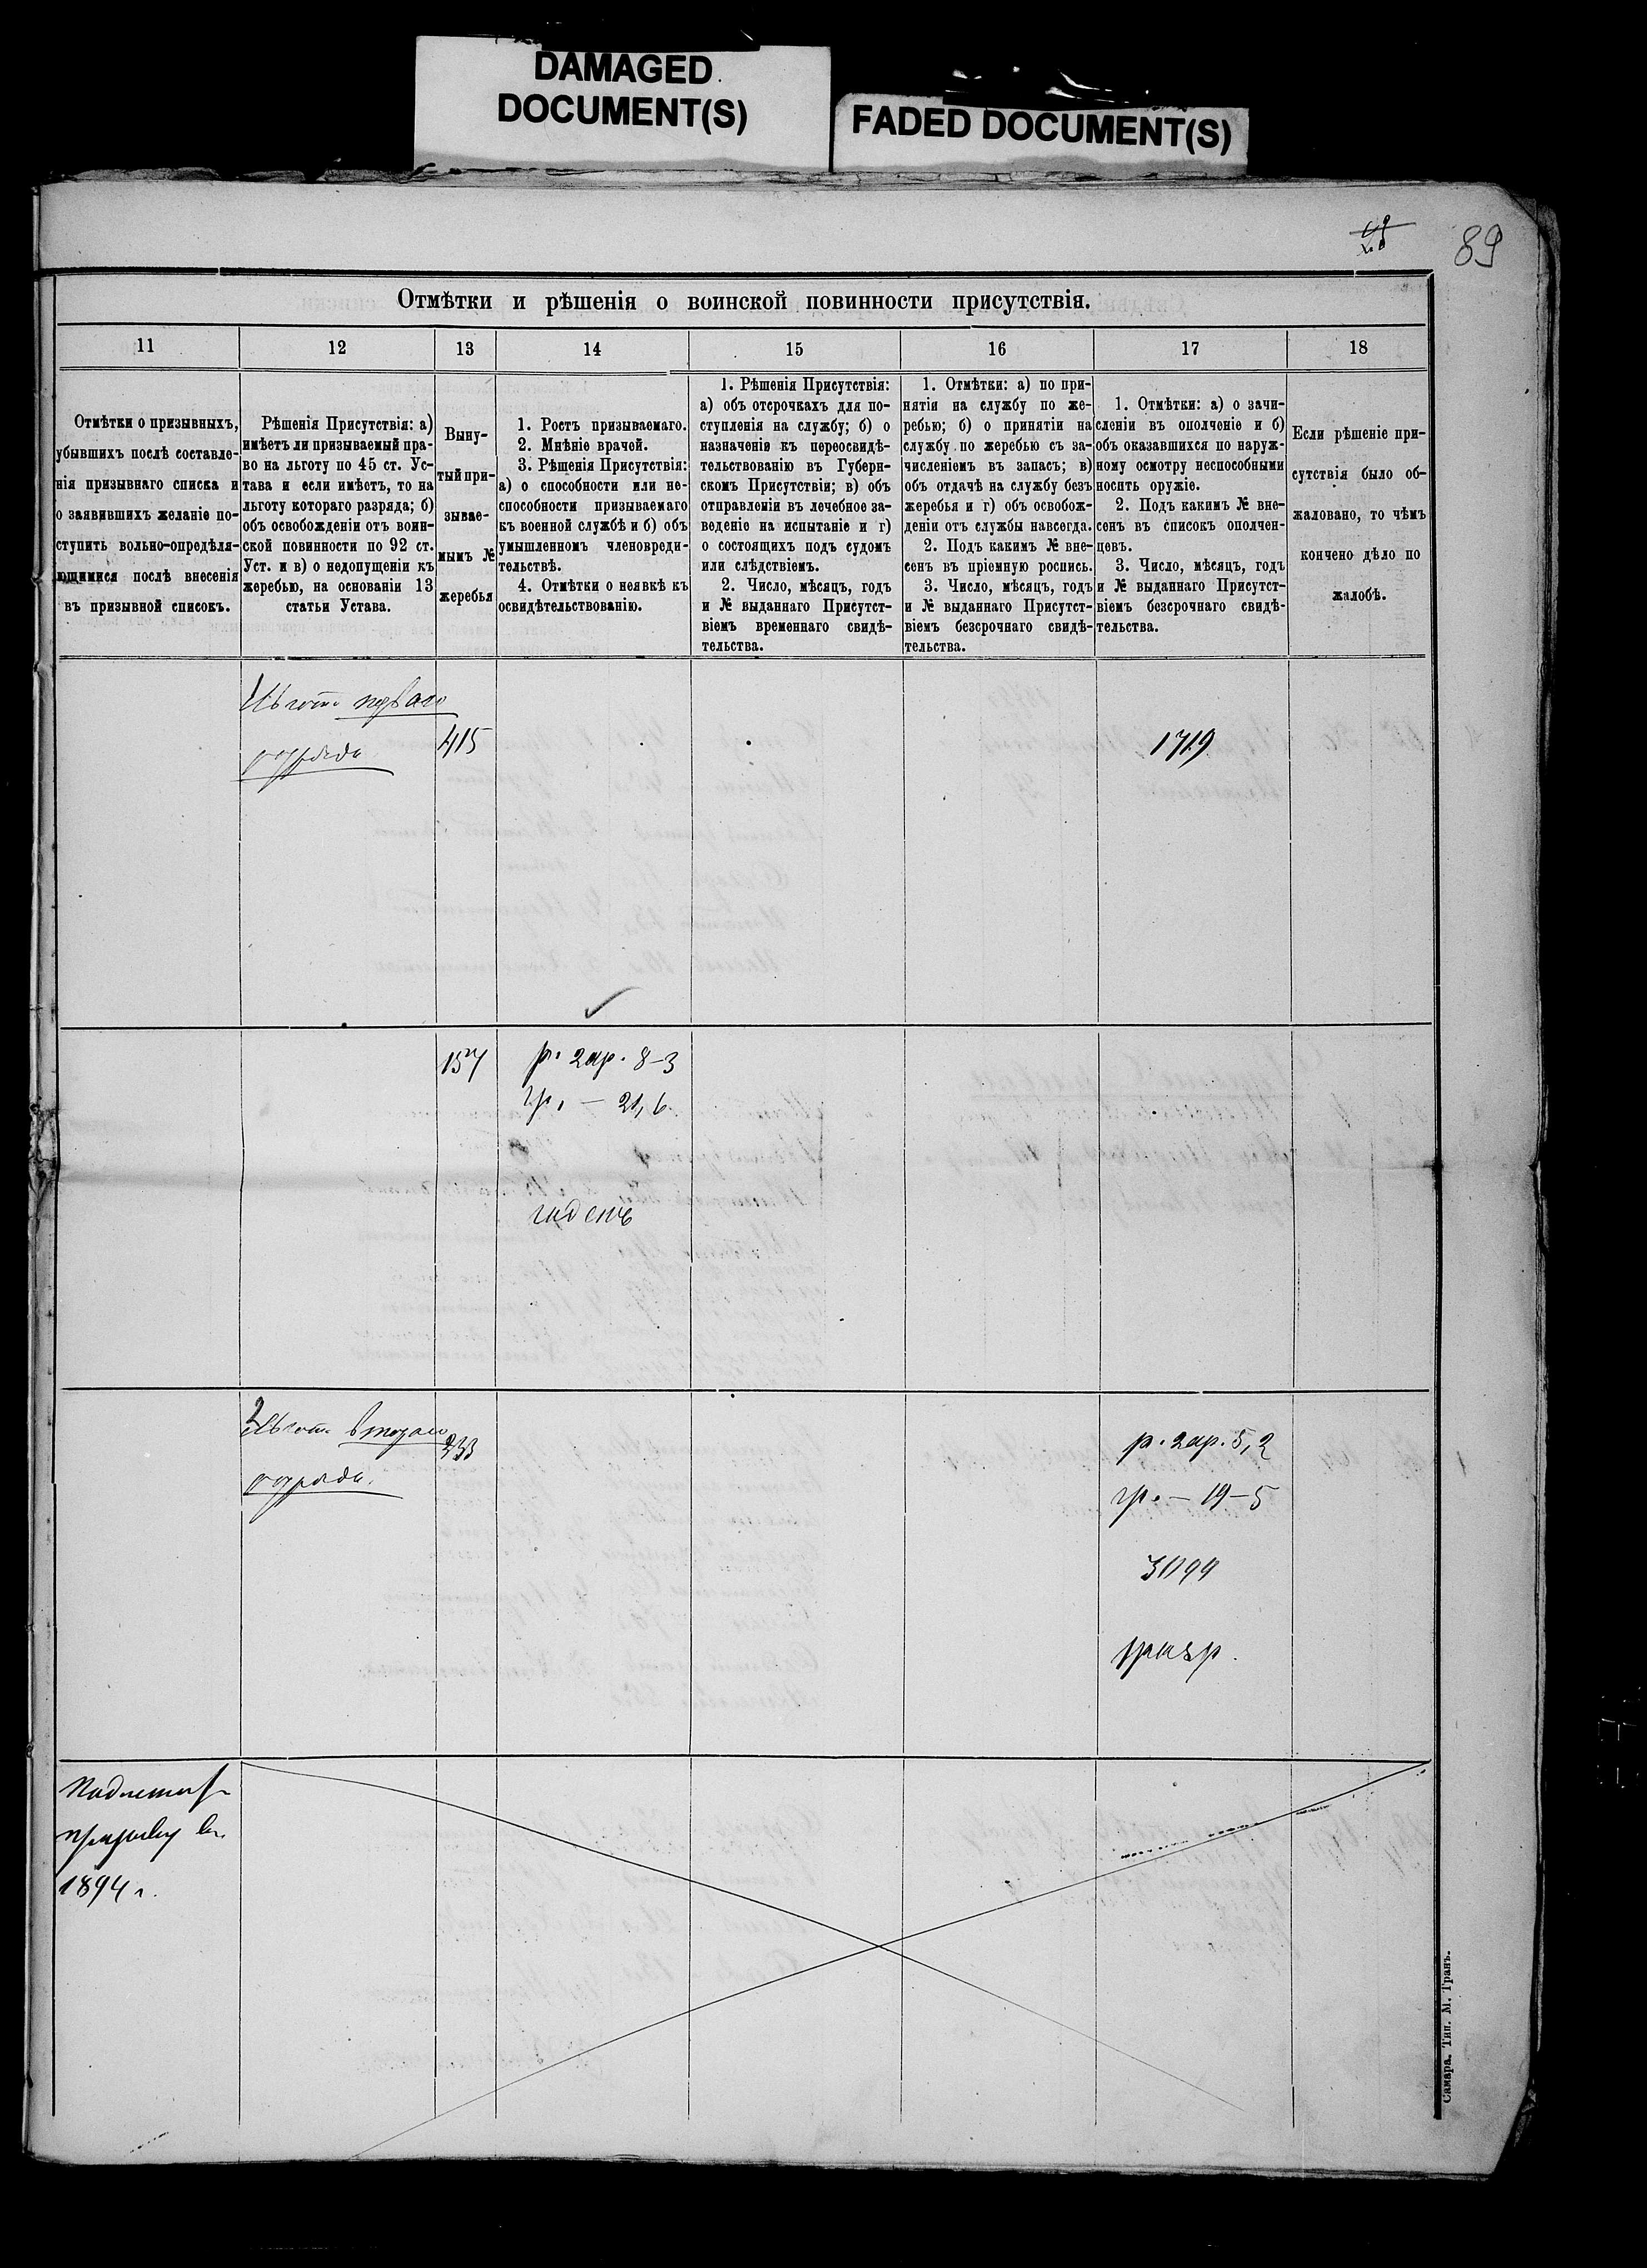 DAMAGED
DOCUMENT(S)
FADED DOCUMENT(S)
89
Отмѣтки и рѣшенія о воинской повинности присутствія.
11
12
13
14
15
16
17
18
Отмѣтки о призывныхъ,
убывшихъ послѣ составле-
нія призывнаго списка и
о заявившихъ желаніе по-
ступить вольно-опредѣля-
ющимися послѣ внесенія
въ призывной списокъ.
Рѣшенія Присутствія: а)
имѣетъ ли призываемый пра-
во на льготу по 45 ст. Ус-
тава и если имѣетъ, то на
льготу котораго разряда; б)
объ освобожденіи отъ воин-
ской повинности по 92 ст.
Уст. и в) о недопущеніи къ
жеребью, на основаніи 13
статьи Устава.
Выну-
тый при-
зывае-
мымъ №
жеребья
1. Ростъ призываемаго.
2. Мнѣніе врачей.
3. Рѣшенія Присутствія:
а) о способности или не-
способности призываемаго
къ военной службѣ и б) объ
умышленномъ членовреди-
тельствѣ.
4. Отмѣтки о неявкѣ къ
освидѣтельствованію.
1. Рѣшенія Присутствія:
а) объ отсрочкахъ для по-
ступленія на службу; б) о
назначеніи къ переосвидѣ-
тельствованію въ Губерн-
скомъ Присутствіи; в) объ
отправленіи въ лечебное за-
веденіе на испытаніе и г)
о состоящихъ подъ судомъ
или слѣдствіемъ.
2. Число, мѣсяцъ, годъ
и № выданнаго Присутст-
віемъ временнаго свидѣ-
тельства.
1. Отмѣтки: а) по при-
нятіи на службу по же-
ребью; б) о принятіи на
службу по жеребью съ за-
численіемъ въ запасъ; в)
объ отдачѣ на службу безъ
жеребья и г) объ освобож-
деніи отъ службы навсегда.
2. Подъ какимъ № вне-
сенъ въ пріемную роспись.
3. Число, мѣсяцъ, годъ
и № выданнаго Присутст-
віемъ безсрочнаго свидѣ-
тельства.
1. Отмѣтки: а) о зачи-
сленіи въ ополченіе и б)
объ оказавшихся по наруж-
ному осмотру неспособными
носить оружіе.
2. Подъ какимъ № вне-
сенъ въ списокъ ополчен-
цевъ.
3. Число, мѣсяцъ, годъ
и № выданнаго Присутст-
віемъ безсрочнаго свидѣ-
тельства.
Если рѣшеніе при-
сутствія было об-
жаловано, то чѣмъ
кончено дѣло по
жалобѣ.
Льгота перваго
разряда
415
1719
157
р. 2 ар. 8-3
гр. — 21,6
годенъ
Льгота втораго
разряда.
233
р. 2 ар. 5,2
гр. — 19-5
3099
Подлежитъ
призыву въ
1894 г.
Самара. Тип. М. Гранъ.